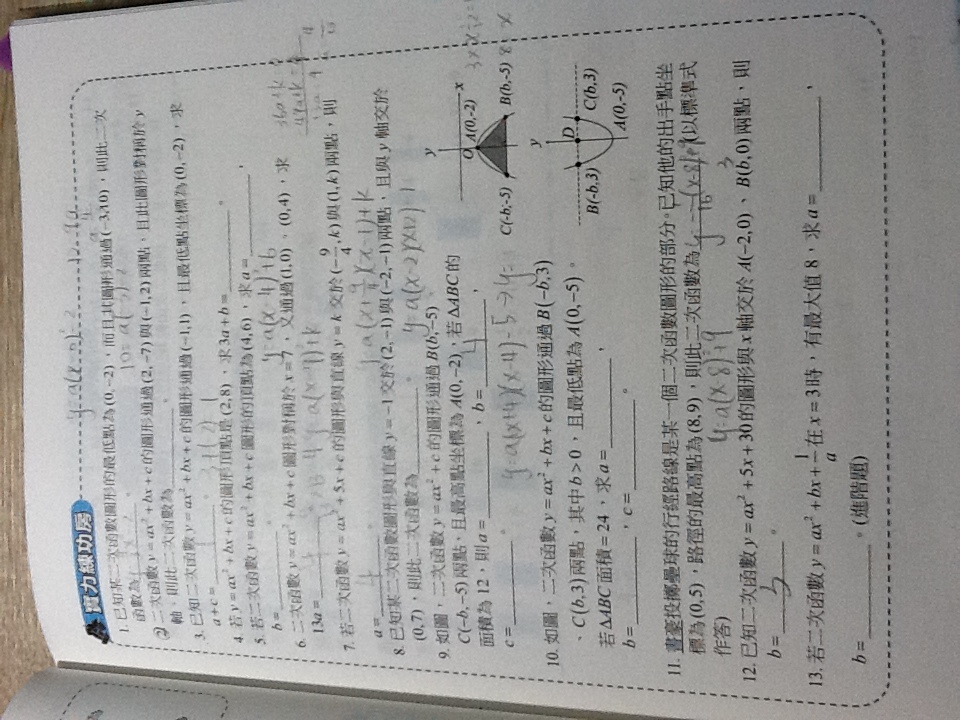 實力練功房
1. 已知某二次函數圖形的最低點為(0,-2)，而且此圖形通過(-3,10)，則此二次
函數為
2. 二次函數 y=ax²+bx+c 的圖形通過(2,-7)與(-1,2)兩點，且此圖形對稱於 y
軸，則此二次函數為。
3. 已知二次函數 y=ax²+bx+c 的圖形通過(-1,1)，且最低點坐標為(0,-2)，求
a+c=。
4. 若 y=ax²+bx+c 的圖形頂點是(2,8)，求3a+b=。
5. 若二次函數 y=ax²+bx+c 圖形的頂點為(4,6)，求 a=，
b=。 y=a(x-4)²+6
6. 二次函數 y=ax²+bx+c 圖形對稱於 x=7，又通過(1,0)、(0,4)，求
13a=
7. 若二次函數 y=ax²+5x+c 的圖形與直線 y=k 交於(-9/4,k)與(1,k)兩點，則
a=。
8. 已知某二次函數圖形與直線 y=-1 交於(2,-1)與(-2,-1)兩點，且與 y 軸交於
(0,7)，則此二次函數為。 y=a(x-2)(x+2)-1
9. 如圖，二次函數 y=ax²+c 的圖形通過 B(b,-5)、
C(-b,-5)兩點，且最高點坐標為 A(0,-2)，若 ΔABC 的
面積為 12，則 a=，b= 4，
c=。 y=a(x+4)(x-4)-5
y
x
O
A(0,-2)
C(-b,-5)
B(b,-5)
10. 如圖，二次函數 y=ax²+bx+c 的圖形通過 B(-b,3)
、C(b,3)兩點，其中 b>0，且最低點為 A(0,-5)。
若 ΔABC 面積=24，求 a=，
b=，c=。
y
D
C(b,3)
B(-b,3)
A(0,-5)
11. 書豪投擲壘球的行經路線是某一個二次函數圖形的部分。已知他的出手點坐
標為(0,5)，路徑的最高點為(8,9)，則此二次函數為 y=-1/16(x-8)²+9 (以標準式
作答) y=a(x-8)²+9
12. 已知二次函數 y=ax²+5x+30 的圖形與 x 軸交於 A(-2,0)、B(b,0)兩點，則
b= 3。
13. 若二次函數 y=ax²+bx+1/a 在 x=3 時，有最大值 8，求 a=，
b=。(進階題)